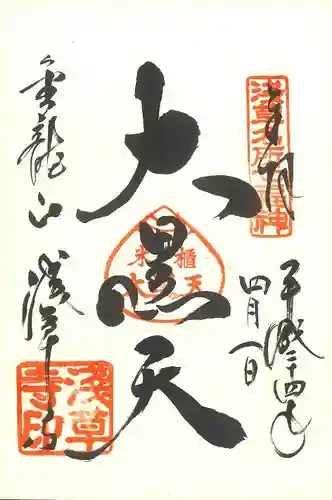 浅草名所七福神
奉拝
平成二十四年
四月一日
大黒天
米櫃
大黒天
金龍山 浅草寺
浅草
寺印